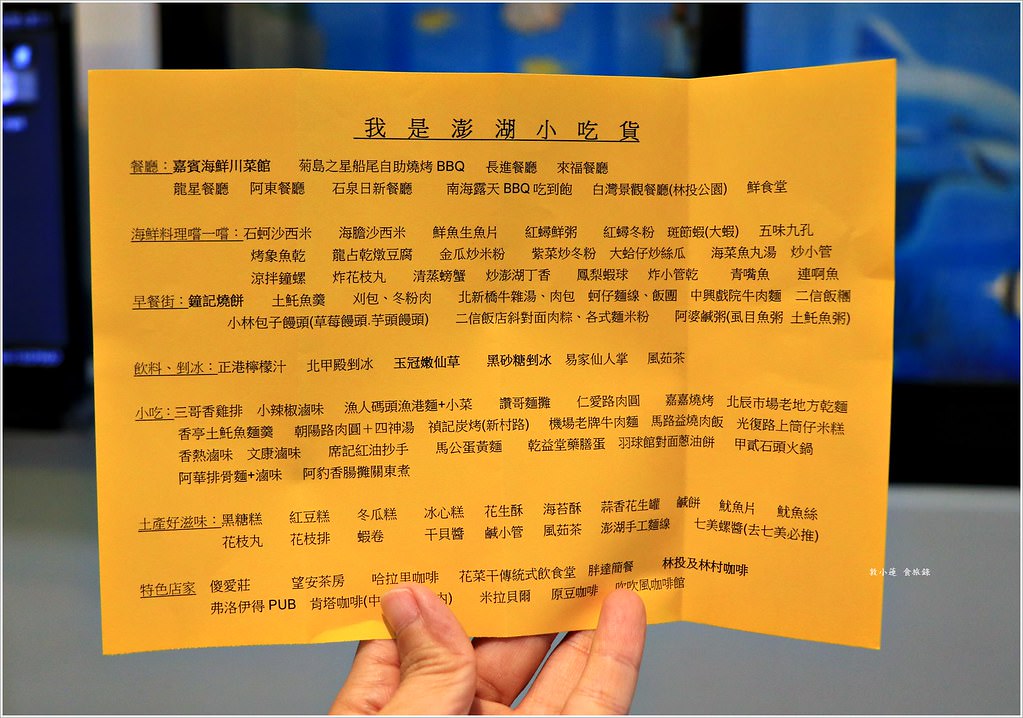 我是澎湖小吃貨
餐廳：嘉賓海鮮川菜館 菊島之星船尾自助燒烤 BBQ 長進餐廳 來福餐廳
龍星餐廳 阿東餐廳 石泉日新餐廳 南海露天 BBQ 吃到飽 白灣景觀餐廳(林投公園) 鮮食堂
海鮮料理嚐一嚐：石蚵沙西米 海膽沙西米 鮮魚生魚片 紅蟳鮮粥 紅蟳冬粉 斑節蝦(大蝦) 五味九孔
烤象魚乾 龍占乾燉豆腐 金瓜炒米粉 紫菜炒冬粉 大蛤仔炒絲瓜 海菜魚丸湯 炒小管
涼拌鐘螺 炸花枝丸 清蒸螃蟹 炒澎湖丁香 鳳梨蝦球 炸小管乾 青嘴魚 連啊魚
早餐街：鐘記燒餅 土魠魚羹 刈包、冬粉肉 北新橋牛雜湯、肉包 蚵仔麵線、飯團 中興戲院牛肉麵 二信飯糰
小林包子饅頭(草莓饅頭.芋頭饅頭) 二信飯店斜對面肉粽、各式麵米粉 阿婆鹹粥(虱目魚粥 土魠魚粥)
飲料、剉冰：正港檸檬汁 北甲殿剉冰 玉冠嫩仙草 黑砂糖剉冰 易家仙人掌 風茹茶
小吃：三哥香雞排 小辣椒滷味 漁人碼頭漁港麵+小菜 讚哥麵攤 仁愛路肉圓 嘉嘉燒烤 北辰市場老地方乾麵
香亭土魠魚麵羹 朝陽路肉圓＋四神湯 禎記炭烤(新村路) 機場老牌牛肉麵 馬路益燒肉飯 光復路上筒仔米糕
香熱滷味 文康滷味 席記紅油抄手 馬公蛋黃麵 乾益堂藥膳蛋 羽球館對面蔥油餅 甲貳石頭火鍋
阿華排骨麵+滷味 阿豹香腸攤關東煮
土產好滋味：黑糖糕 紅豆糕 冬瓜糕 冰心糕 花生酥 海苔酥 蒜香花生罐 鹹餅 魷魚片 魷魚絲
花枝丸 花枝排 蝦卷 干貝醬 鹹小管 風茹茶 澎湖手工麵線 七美螺醬(去七美必推)
特色店家 傻愛莊 望安茶房 哈拉里咖啡 花菜干傳統式飲食堂 胖達簡餐 林投及林村咖啡
弗洛伊得 PUB 肯塔咖啡(中 內) 米拉貝爾 原豆咖啡 吹吹風咖啡館
敦小蓮 食旅錄